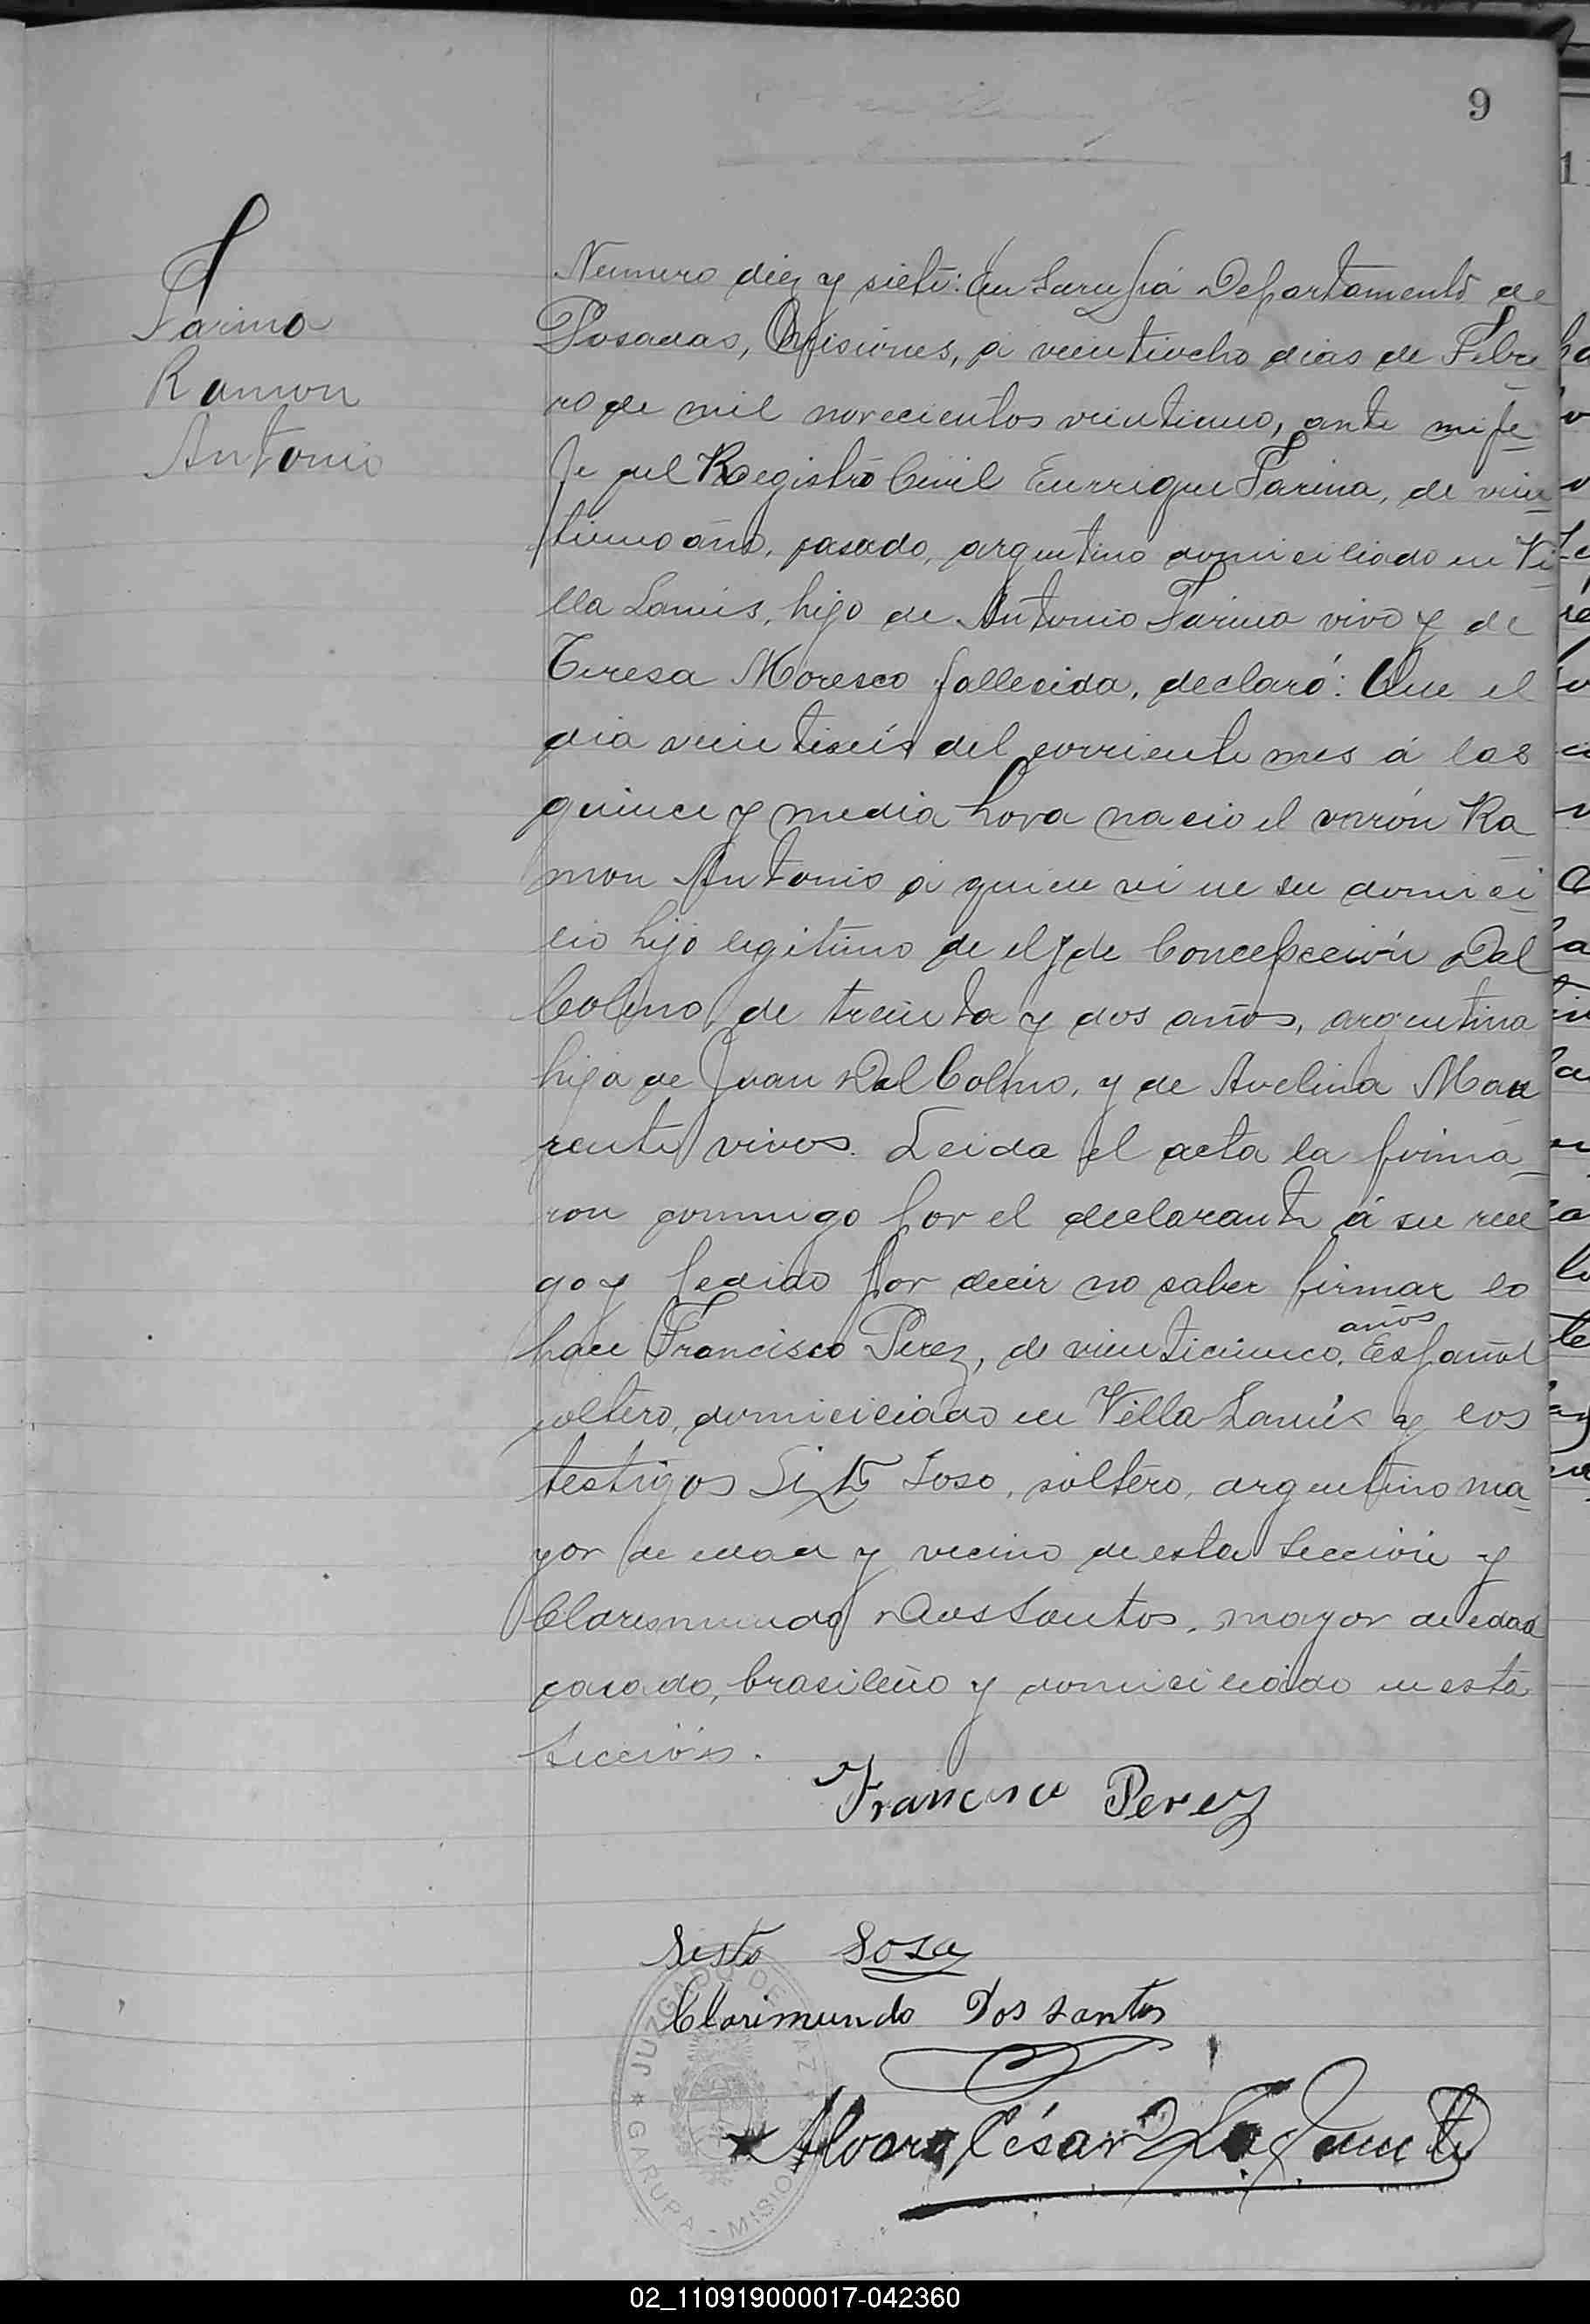 9
Farina
Ramon
Antonio
Numero diez y siete: En Garupá Departamento de
Posadas, Misiones, a veintiocho dias de Febre
ro de mil novecientos veintiuno, ante mi fe-
fe del Registro Civil Enrrique Farina, de vein
tiuno año, casado, argentino domiciliado en Vi-
lla Lanús, hijo de Antonio Farina vivo y de
Teresa Moresco fallecida, declaró: Que el
dia veintiseis del corriente mes á las
quince y media hora nacio el varón Ra
mon Antonio a quien vi ne su domici-
lio hijo legitimo de el y de Concepción Dal
Colmo, de treinta y dos años, argentina
hija de Juan Dal Colmo, y de Avelina Mau
rente vivos. Leida el acta la firma-
ron conmigo por el declarante á su rue
go y pedido por decir no saber firmar lo
hace Francisco Perez, de veinticinco años Español
soltero, domiciliado en Villa Lanús y los
testigos Sixto Soso, soltero, argentino ma-
yor de edad y vecino de esta Sección y
Clarimundo Dos Santos, mayor de edad
casado, brasileño y domiciliado en esta
Sección.
Francisco Perez
Sisto Sosa
Clarimundo Dos santos
Alvaro César Lafuente
JUZGADO DE PAZ
GARUPA - MISIONES
02_110919000017-042360